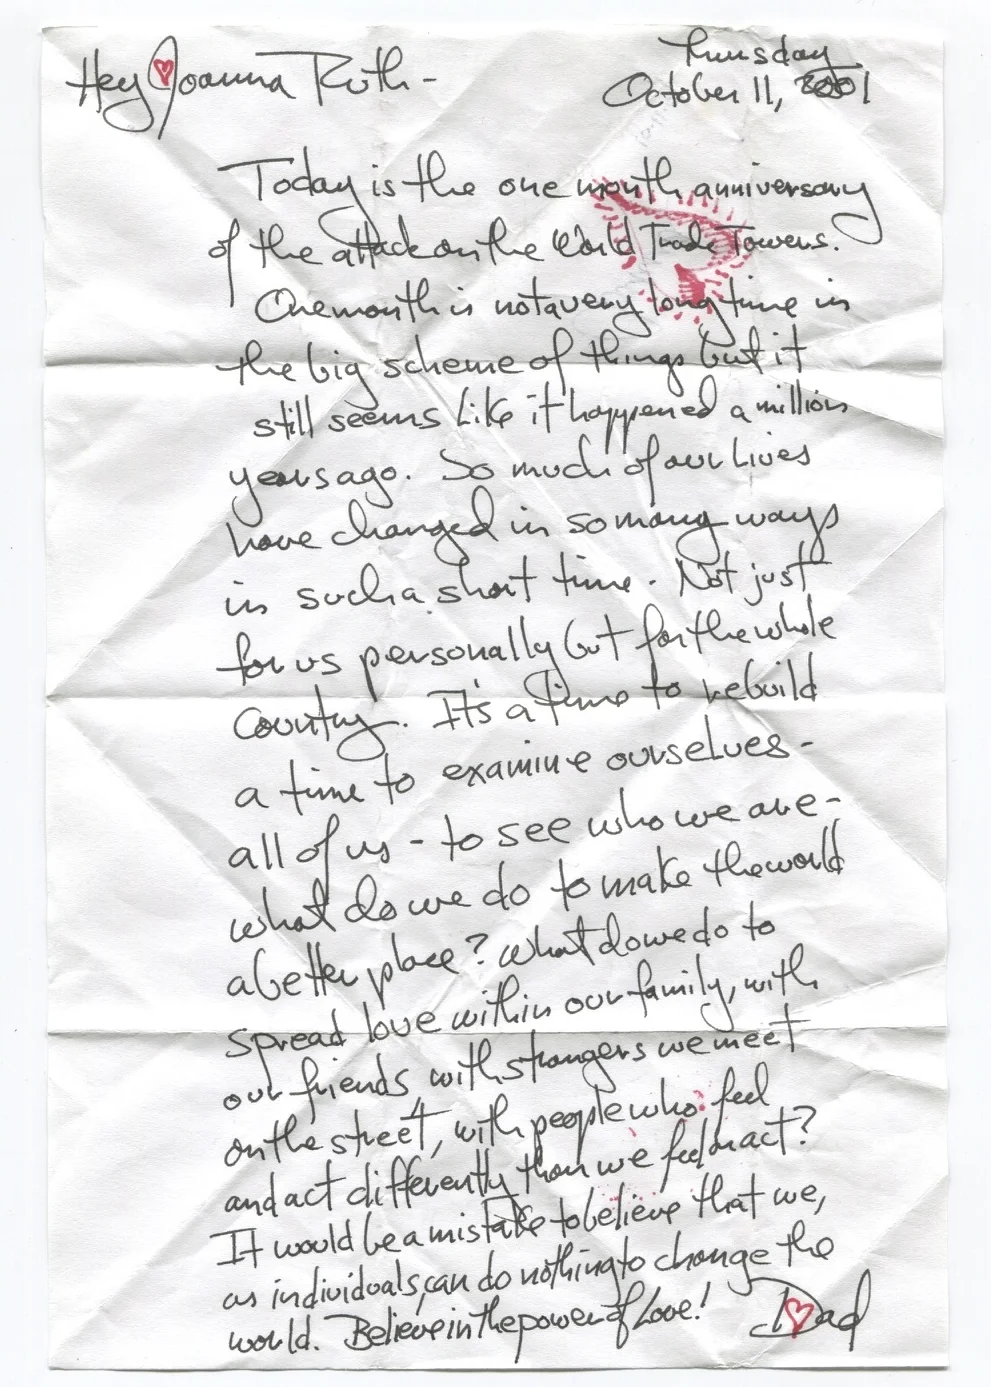 Hey Joanna Ruth-
Thursday
October 11, 2001
Today is the one month anniversary
of the attack on the World Trade Towers.
One month is not a very long time in
the big scheme of things but it
still seems like it happened a million
years ago. So much of our lives
have changed in so many ways
in such a short time. Not just
for us personally but for the whole
country. It's a time to rebuild
a time to examine ourselves-
all of us - to see who we are-
what do we do to make the world
a better place? What do we do to
spread love within our family, with
our friends, with strangers we meet
on the street, with people who feel
and act differently than we feel or act?
It would be a mistake to believe that we,
as individuals, can do nothing to change the
world. Believe in the power of Love!
Dad